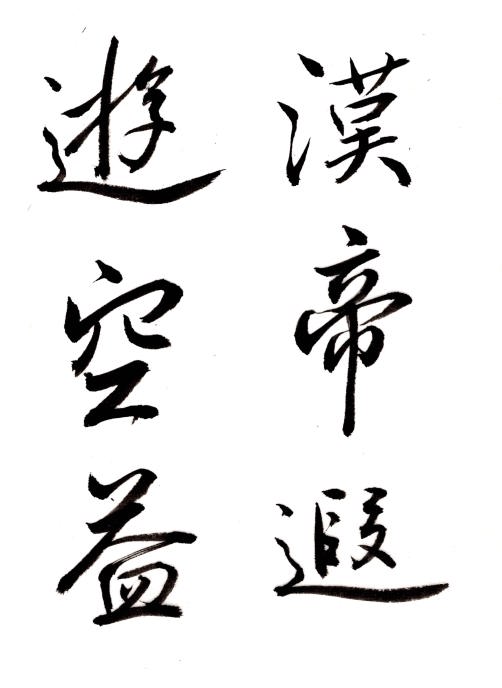 漢帝遐
遊空益